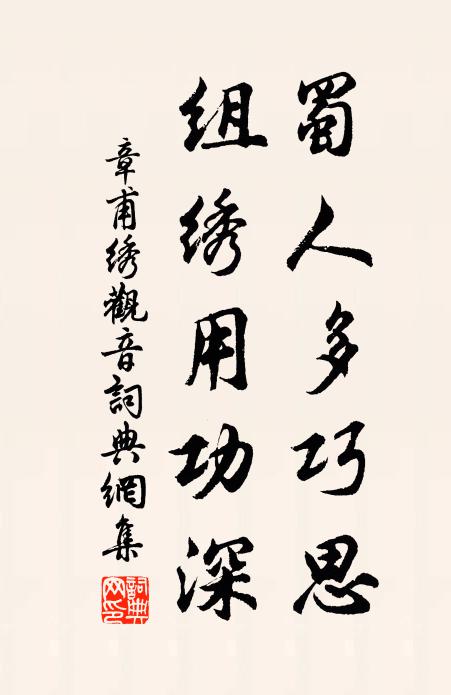 蜀人多巧思
组绣用功深
章甫绣觀音詞典網集
詞典网印